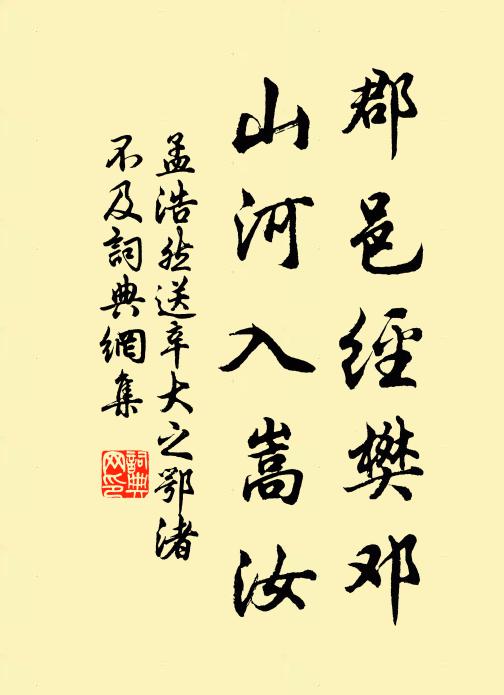 郡邑經樊邓
山河入嵩汝
孟浩然送辛大之鄂渚
不及詞典網集
詞典
网印